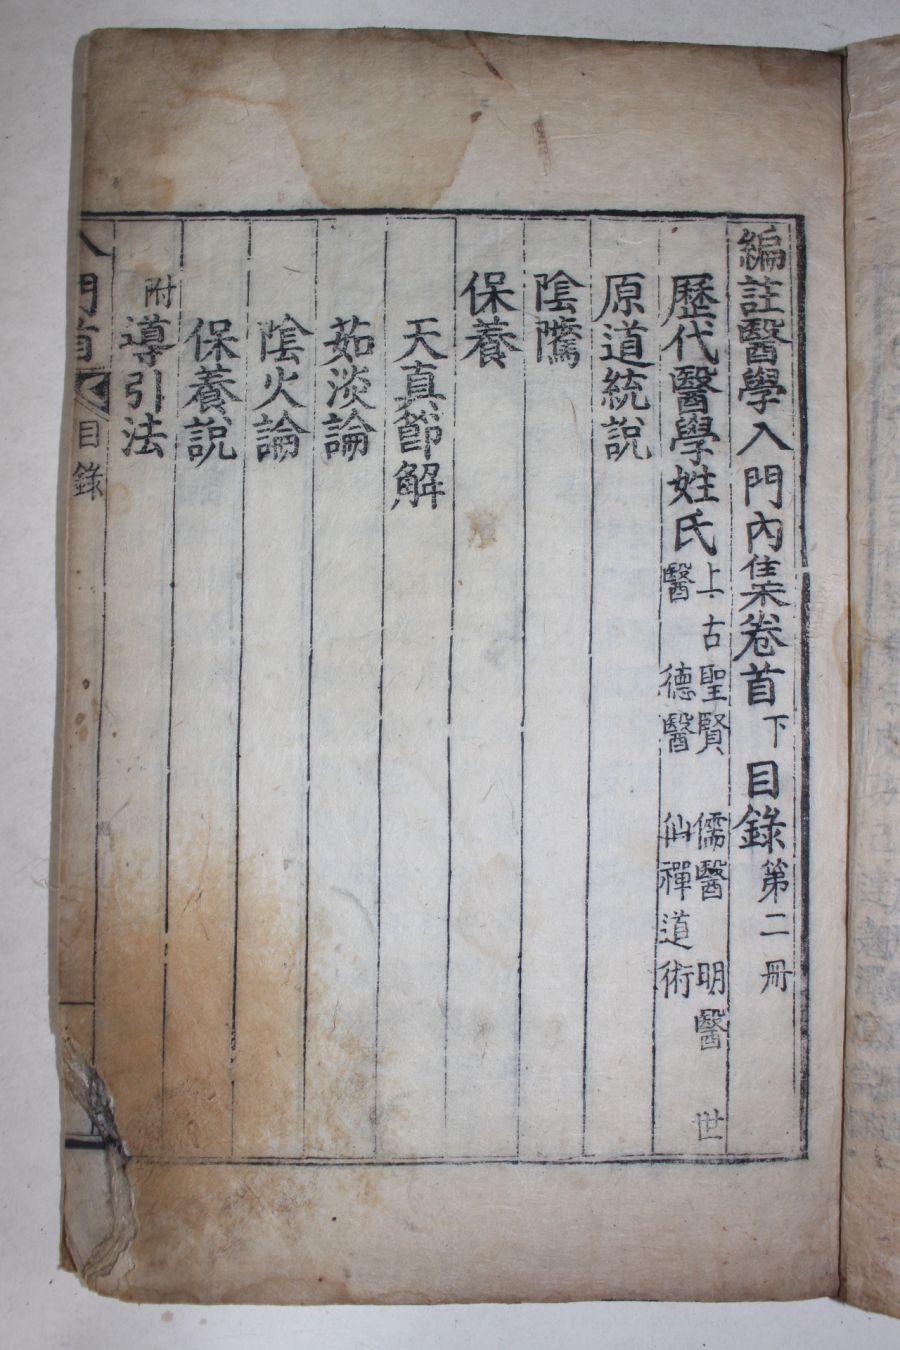 編註醫學入門內集卷首下目錄第二冊
歷代醫學姓氏
上古聖賢 儒醫 明醫 世
醫 德醫 仙禪道術
原道統說
陰隲
保養
天真節解
茹淡論
陰火論
保養說
附導引法
入門首 目錄